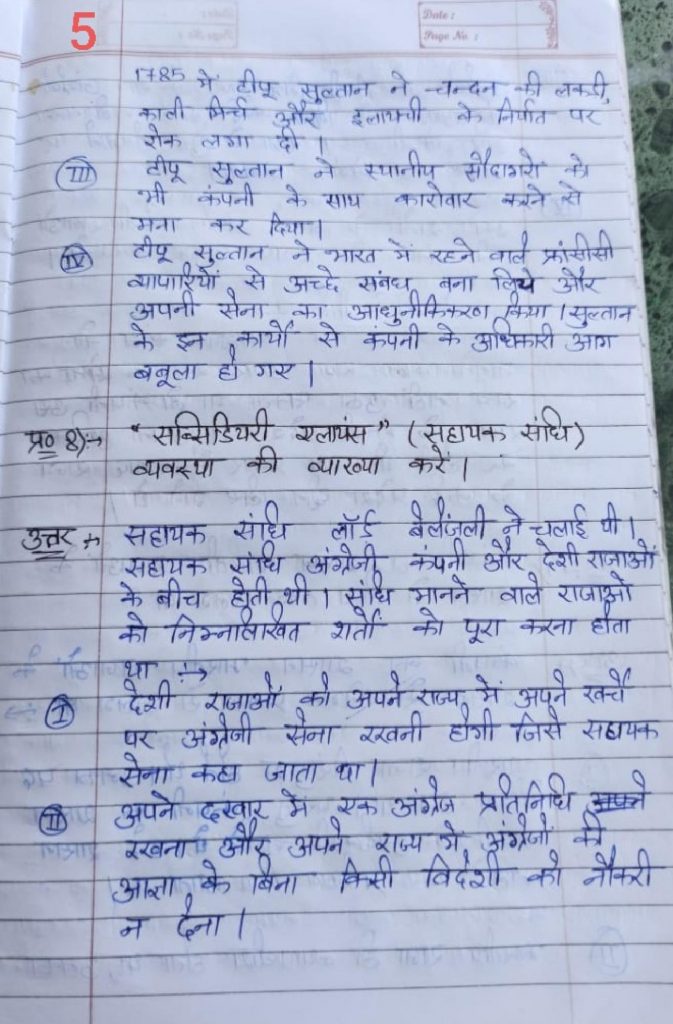 5
Date :
Page No. :
1785 में टीपू सुल्तान ने चन्दन की लकड़ी,
काली मिर्च और इलायची के निर्यात पर
रोक लगा दी।
III टीपू सुल्तान ने स्थानीय सौदागरो को
भी कंपनी के साथ कारोवार करने से
मना कर दिया।
IV टीपू सुल्तान ने भारत में रहने वाले फ्रांसीसी
व्यापारियों से अच्छे संबंध बना लिये और
अपनी सेना का आधुनीकिकरण किया। सुल्तान
के इन कार्यो से कंपनी के अधिकारी आग
बबूला हो गए।
प्र० 8):→ "सब्सिडियरी एलायंस" (सहायक संधि)
व्यवस्था की व्याख्या करें।
उत्तर :→ सहायक संधि लॉर्ड वेलेंजली ने चलाई थी।
सहायक संधि अंग्रेजी कंपनी और देशी राजाओं
के बीच होती थी। संधि मानने वाले राजाओं
को निम्नलिखित शर्तो को पूरा करना होता
था :→
I देशी राजाओं को अपने राज्य में अपने खर्चे
पर अंग्रेजी सेना रखनी होगी जिसे सहायक
सेना कहा जाता था।
II अपने दरबार में एक अंग्रेज प्रतिनिधि
रखना और अपने राज्य मे अंग्रेजों की
आज्ञा के बिना किसी विदेशी को नौकरी
न देना।